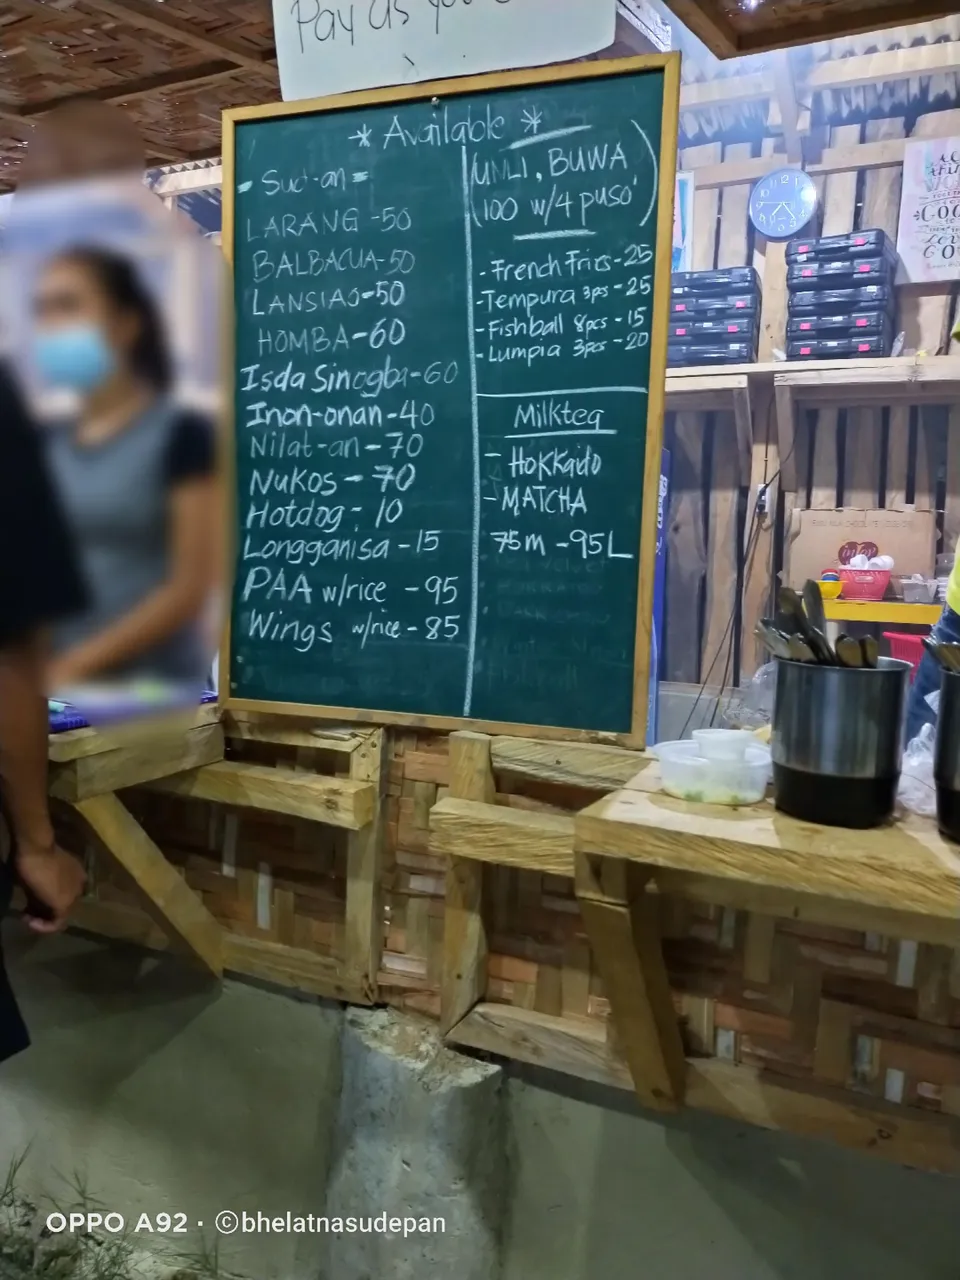 Pay as you
* Available *
= Sud-an =
LARANG - 50
BALBACUA - 50
LANSIAO - 50
HOMBA - 60
Isda Sinogba - 60
Inon-onan - 40
Nilat-an - 70
Nukos - 70
Hotdog - 10
Longganisa - 15
PAA w/rice - 95
Wings w/rice - 85
(UNLI, BUWA
100 w/4 puso)
- French Fries - 25
- Tempura 3pcs - 25
- Fishball 8pcs - 15
- Lumpia 3pcs - 20
Milktea
- HOKKaido
- MATCHA
75m - 95L
OPPO A92 · ©bhelatnasudepan